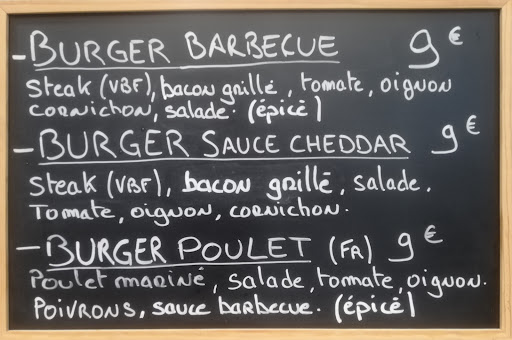 - BURGER BARBECUE 9€
Steak (VBF), bacon grillé, tomate, oignon
cornichon, salade. (épicé)
- BURGER SAUCE CHEDDAR 9€
Steak (VBF), bacon grillé, salade.
Tomate, oignon, cornichon.
- BURGER POULET (FR) 9€
Poulet mariné, salade, tomate, oignon.
POIVRONS, sauce barbecue. (épicé)